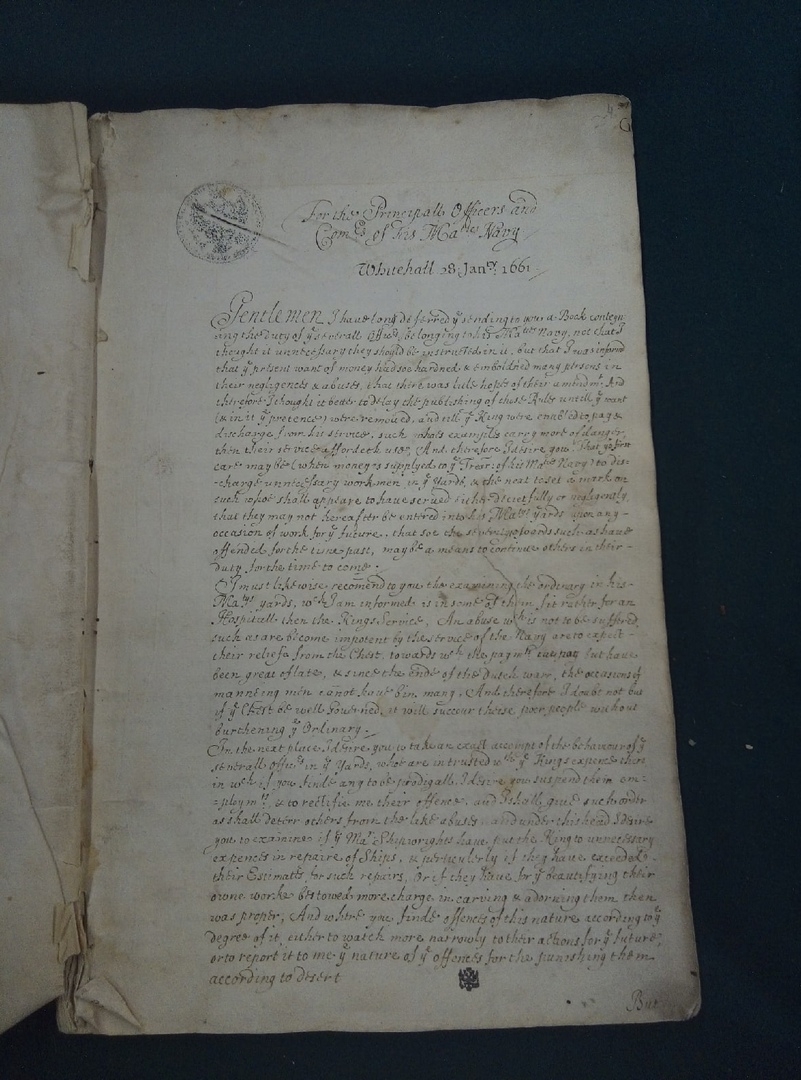 For the Principall Officers and
Com.rs of his Ma.ties Navy
Whitehall 28: Jan.ry 1661:
Gentlemen I have long deferred ye sending to you a Book contein-
ing the Duty of ye severall Officers belonging to his Ma.ties Navy, not that I
thought it unnecessary they should be instructed in it, but that I was inform'd
that ye present want of money had soe hardned & emboldned many persons in
their negligences & abuses, that there was litle hope of their amendmt. And
therefore I thought it better to delay the publishing of those Rules untill ye want
(& in it ye pretence) were removed, and till ye King were enabled to pay &
discharge from his service, such whose examples carry more of danger
then their service affordeth use, And therefore I desire you That ye first
care may be (when money is supplyed to ye Trear: of his Ma.ties Navy) to dis-
-charge unnecessary workmen in ye Yards, & the next to set a mark on
such whoe shall appeare to have served either deceitfully or negligently
that they may not hereafter be entered into his Ma.ties yards upon any-
occasion of work for ye future, that soe the severity towards such as have
offended for the time past, may be a means to continue others in their-
duty for the time to come.
I must likewise recomend to you the examining the ordinary in his-
Ma.ties yards, wch I am informed is in some of them fit rather for an
Hospitall then the Kings Service, An abuse wch is not to be suffered
such as are become impotent by the service of the Navy are to expect-
their reliefe from the Chest, towards wch the paymts but have
been great of late, & since the ende of the Dutch warr, the occasions of
maimeing men cannot have bin many, And therefore I doubt not but
if ye Chest be well Governed, it will succeur those poor people without
burthening ye Ordinary.
In the next place I desire you to take an exact accompt of the behaviour of ye
severall Officers in ye Yards, who are intrusted wth ye Kings expence there
in wch if you finde any to be prodigall, I desire you suspend their em-
-ploymt, & to certifie me their offence, and I shall give such order
as shall deterr others from the like abuses, and under this head I desire
you to examine if ye Mar Shipwrights have put the King to unnecessary
expences in repaire of Ships, & perticulerly if they have exceeded-
their Estimates for such repairs, Or if they have for ye beautifying their
owne worke bestowed more charge in carving & adorning them then
was proper, And where you finde offences of this nature according to ye
degree of it, either to watch more narrowly to their actions for ye future,
or to report it to me ye nature of ye offences for the punishing them
according to desert
But